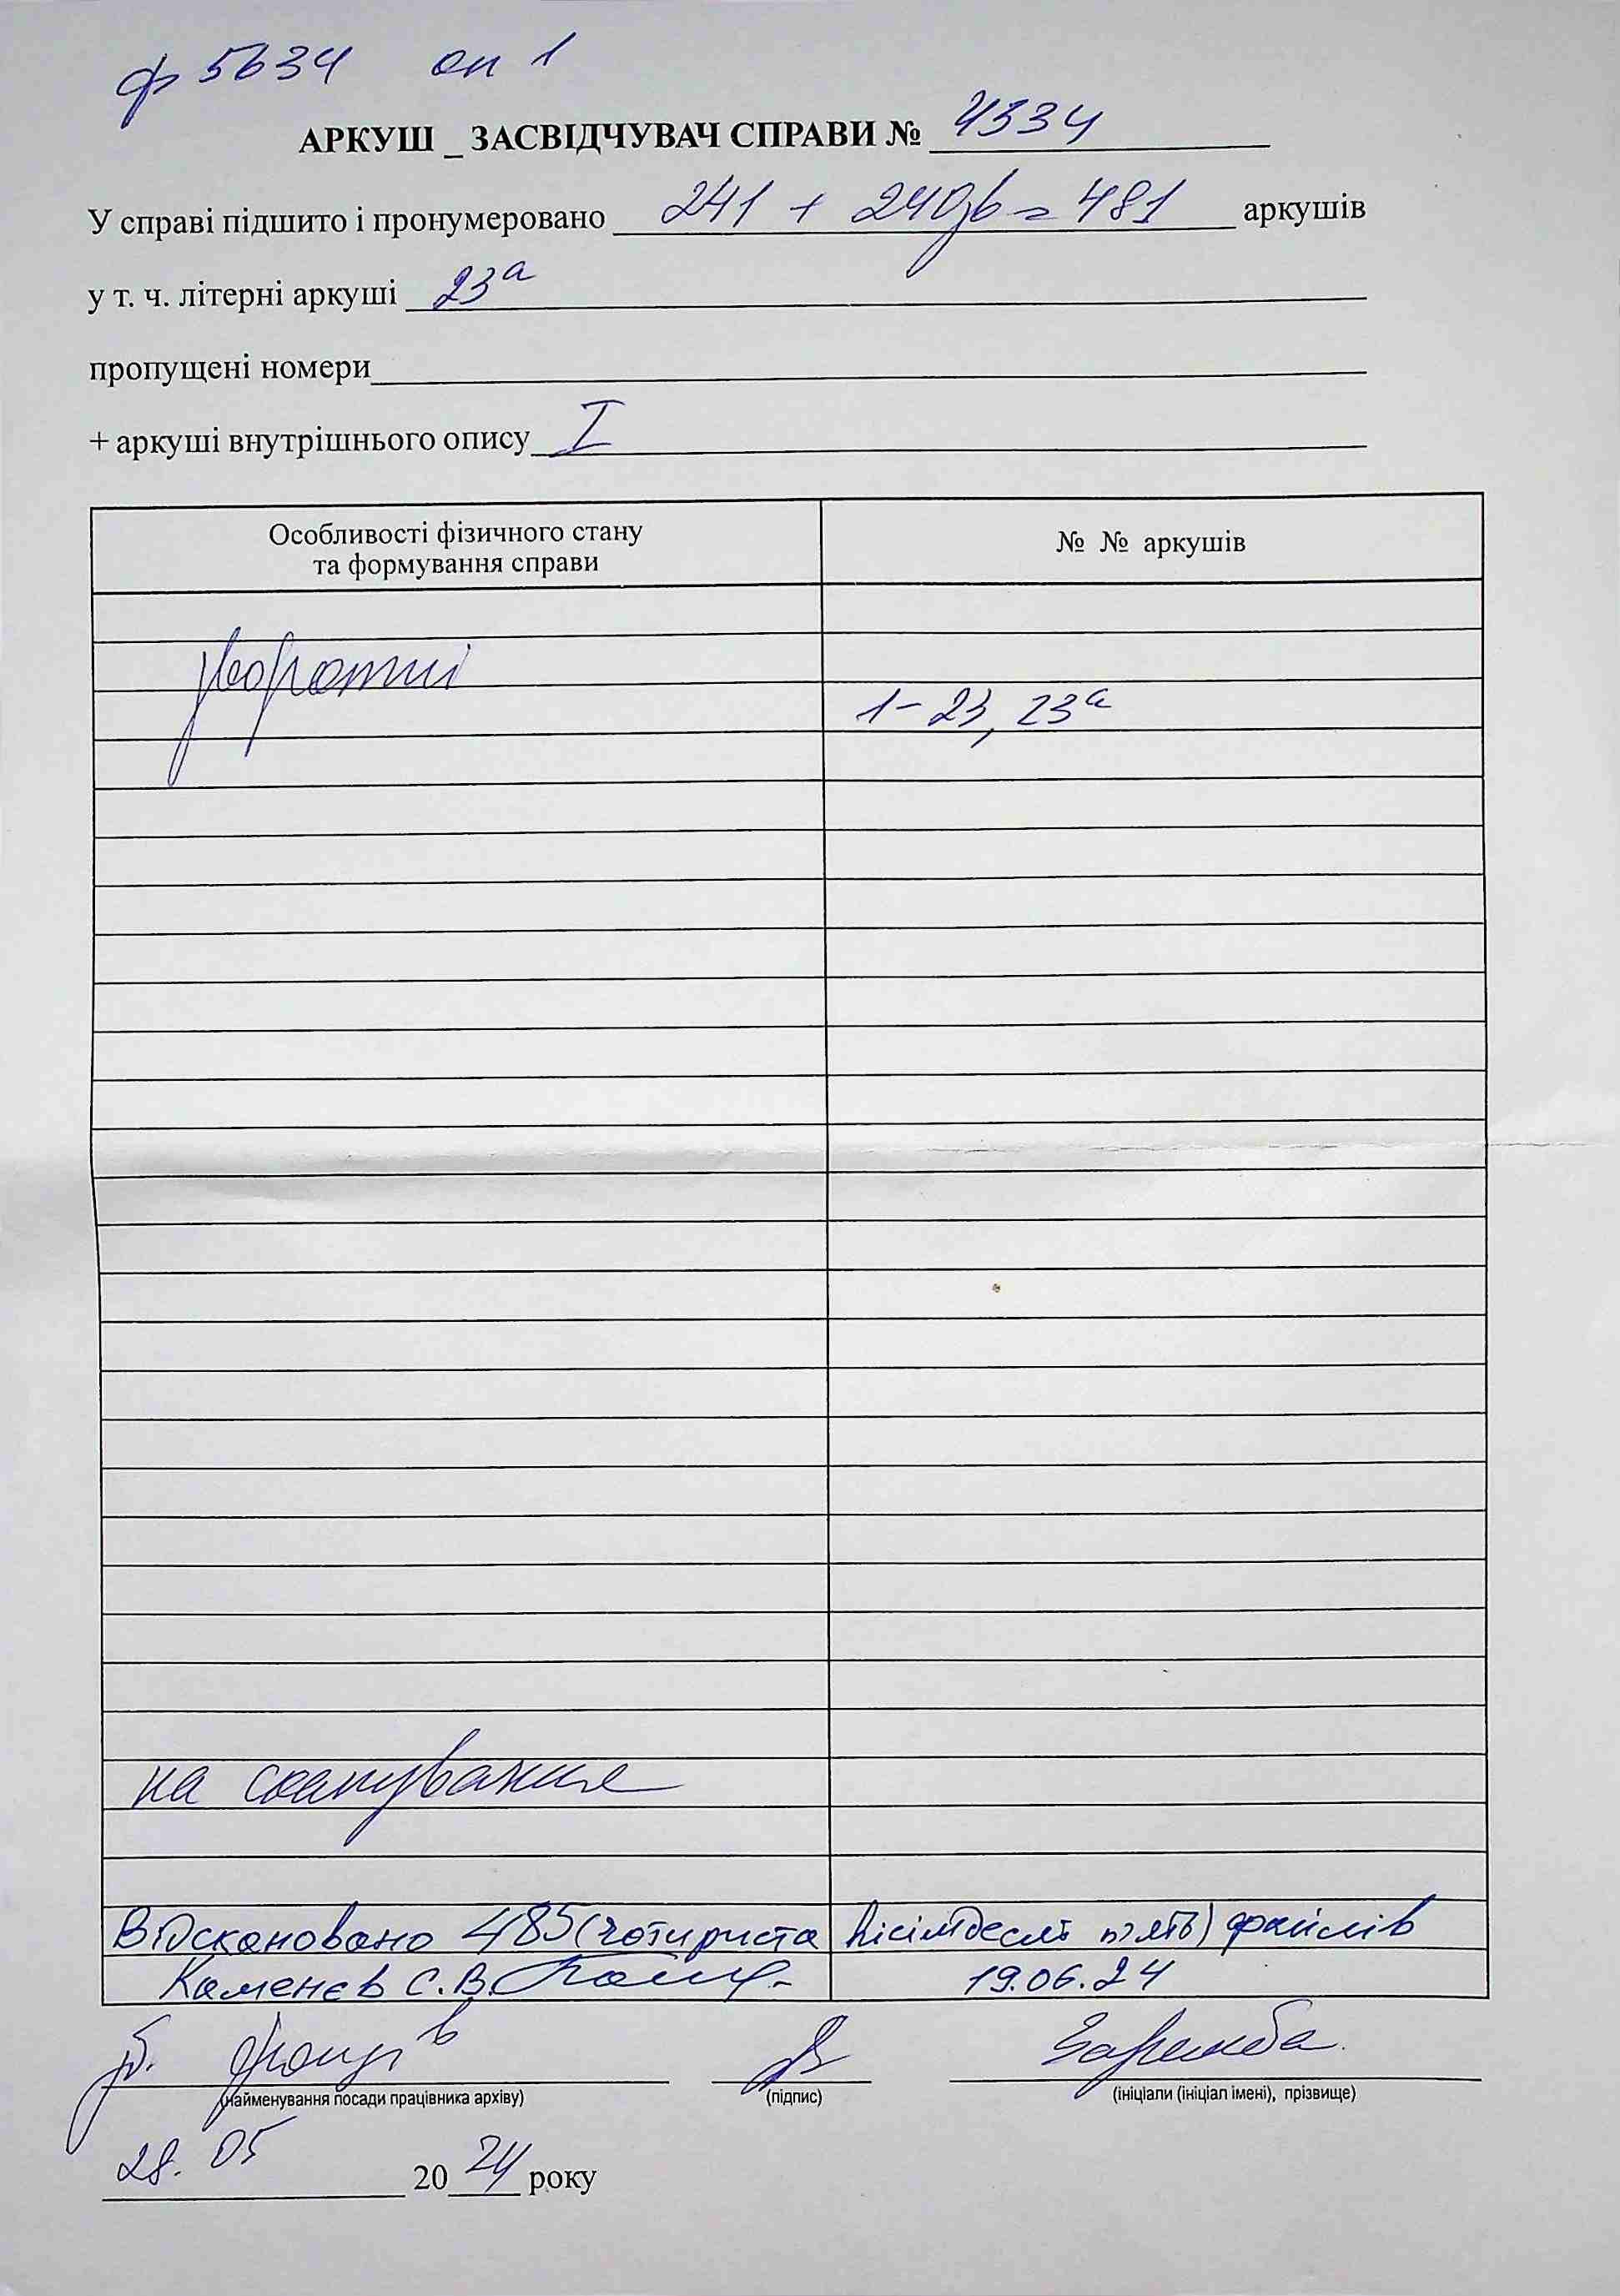 ф 5634 оп 1
АРКУШ _ ЗАСВІДЧУВАЧ СПРАВИ № 4334
У справі підшито і пронумеровано 241 + 240зв = 481 аркушів
у т. ч. літерні аркуші 23а
пропущені номери
+ аркуші внутрішнього опису I
Особливості фізичного стану та формування справи
№ № аркушів
1-23, 23а
на сканування
Відскановано 485 (чотириста вісімдесят п'ять) файлів
Каменєв С.В. 19.06.24
фондів
(найменування посади працівника архіву)
(підпис)
(ініціали (ініціал імені), прізвище)
28. 05 2024 року